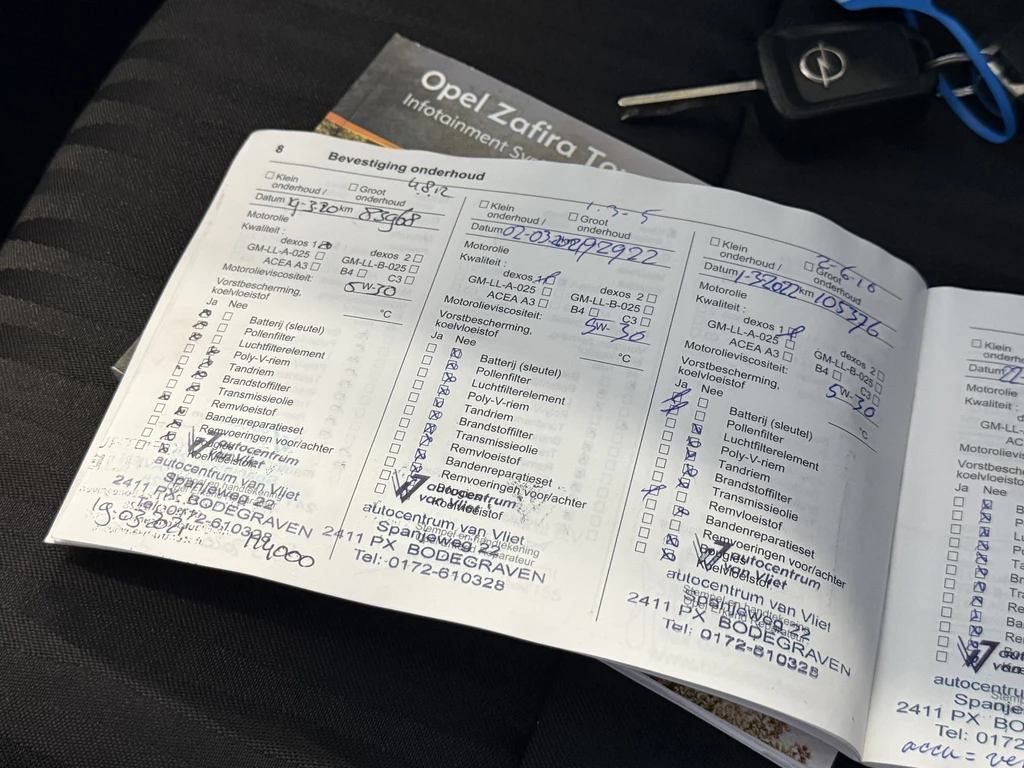 Opel Zafira To
Infotainment Sys
8 Bevestiging onderhoud
4.8.12
☐ Klein onderhoud / ☐ Groot onderhoud
Datum 19-3-20 km 83968
Motorolie
Kwaliteit :
dexos 1 dexos 2 ☐
GM-LL-A-025 ☐ GM-LL-B-025 ☐
ACEA A3 ☐ B4 ☐ C3 ☐
Motorolieviscositeit: 5W-30
Vorstbescherming, koelvloeistof °C
Ja Nee
Batterij (sleutel)
Pollenfilter
Luchtfilterelement
Poly-V-riem
Tandriem
Brandstoffilter
Transmissieolie
Remvloeistof
Bandenreparatieset
Remvoeringen voor/achter
autocentrum
van Vliet
autocentrum van Vliet
Spanjeweg 22
2411 PX BODEGRAVEN
Tel.: 0172-610328
114000
1-3-5
☐ Klein onderhoud / ☐ Groot onderhoud
Datum 02-03 km 92922
Motorolie
Kwaliteit :
dexos 1 dexos 2 ☐
GM-LL-A-025 ☐ GM-LL-B-025 ☐
ACEA A3 ☐ B4 ☐ C3 ☐
Motorolieviscositeit: 5W-30
Vorstbescherming, koelvloeistof °C
Ja Nee
Batterij (sleutel)
Pollenfilter
Luchtfilterelement
Poly-V-riem
Tandriem
Brandstoffilter
Transmissieolie
Remvloeistof
Bandenreparatieset
Remvoeringen voor/achter
autocentrum
van Vliet
Koelvloeistof
autocentrum van Vliet
Stempel en handtekening
Spanjeweg 22
2411 PX BODEGRAVEN
Tel.: 0172-610328
☐ Klein onderhoud / ☐ Groot onderhoud
Datum 1-3-2022 km 105376
Motorolie
Kwaliteit :
dexos 1 dexos 2 ☐
GM-LL-A-025 ☐ GM-LL-B-025 ☐
ACEA A3 ☐ B4 ☐ C3 ☐
Motorolieviscositeit: 5W-30
Vorstbescherming, koelvloeistof °C
Ja Nee
Batterij (sleutel)
Pollenfilter
Luchtfilterelement
Poly-V-riem
Tandriem
Brandstoffilter
Transmissieolie
Remvloeistof
Bandenreparatieset
Remvoeringen voor/achter
autocentrum
van Vliet
Koelvloeistof
autocentrum van Vliet
Spanjeweg 22
2411 PX BODEGRAVEN
Tel: 0172-610328
☐ Klein onderhoud
Datum 22
Motorolie
Kwaliteit :
GM-LL-A
ACE
Motorolieviscos
Vorstbeschermi
koelvloeistof
Ja Nee
B
P
L
P
Ta
Br
Tra
Re
Ba
Re
auto
van
autocentru
Spanje
2411 PX B
Tel.: 0172
accu = ve